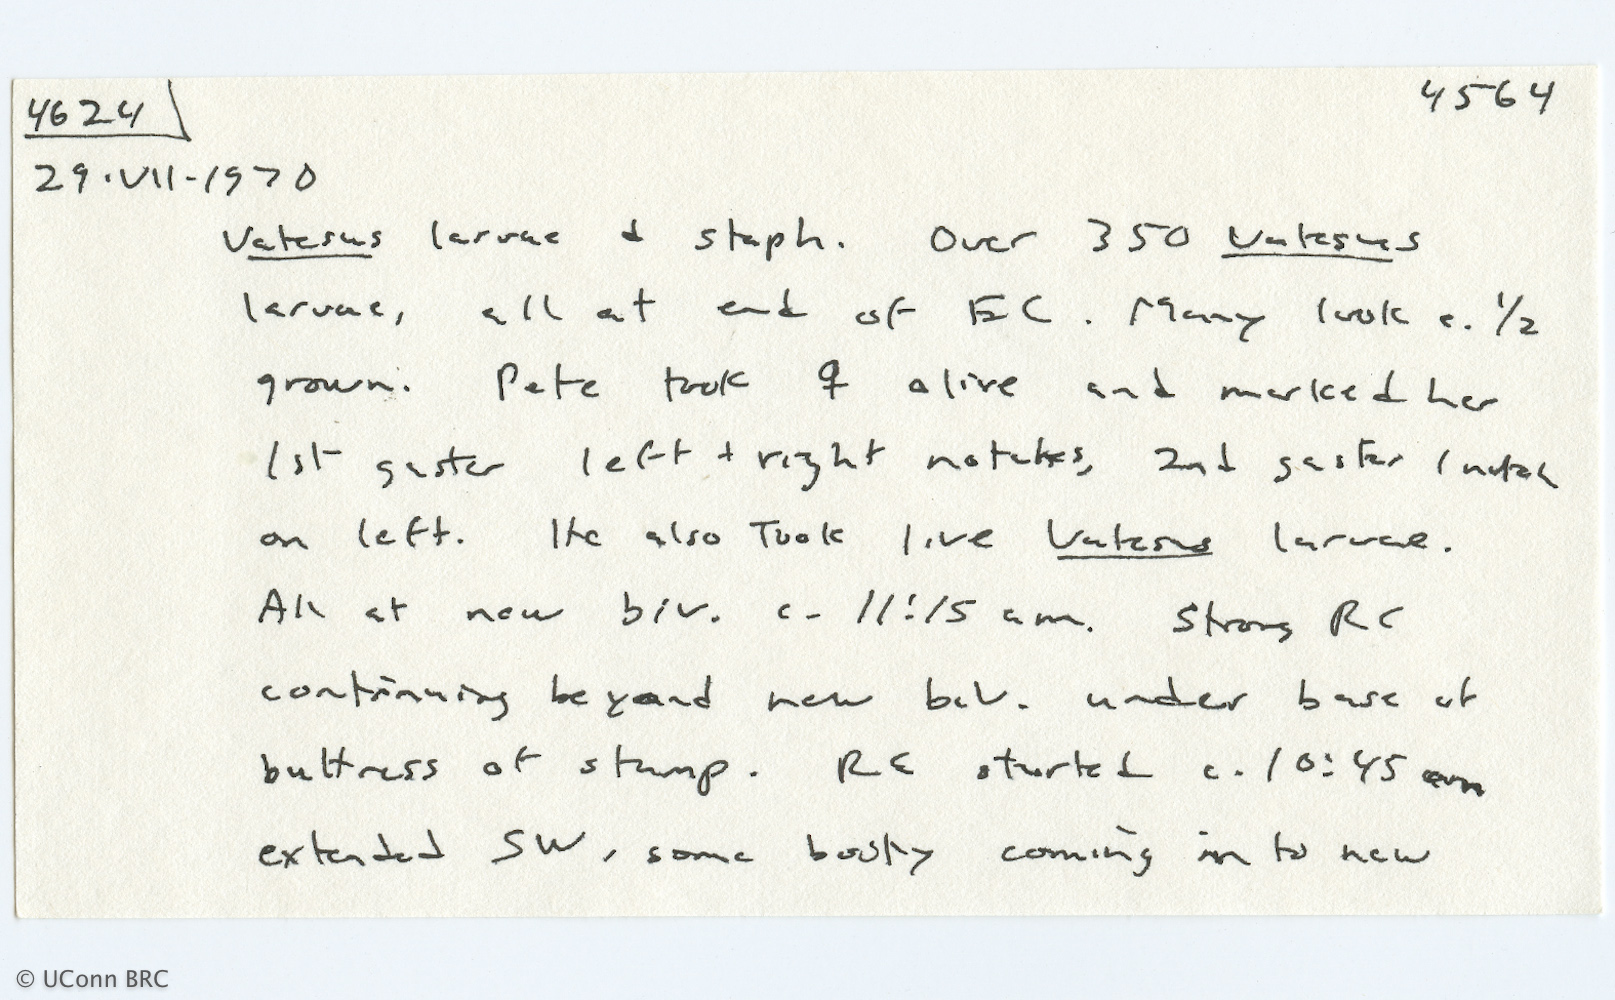 4624 4564
29.VII-1970
Vatesus larvae & staph. Over 350 Vatesus
larvae, all at end of EC. Many look c. 1/2
grown. Pete took ♀ alive and marked her
1st gaster left + right notches, 2nd gaster 1 notch
on left. He also took live Vatesus larvae.
All at new biv. c. 11:15 am. Strong RC
continuing beyond new biv. under base of
buttress of stump. RC started c. 10:45 am
extended SW, some booty coming in to new
© UConn BRC